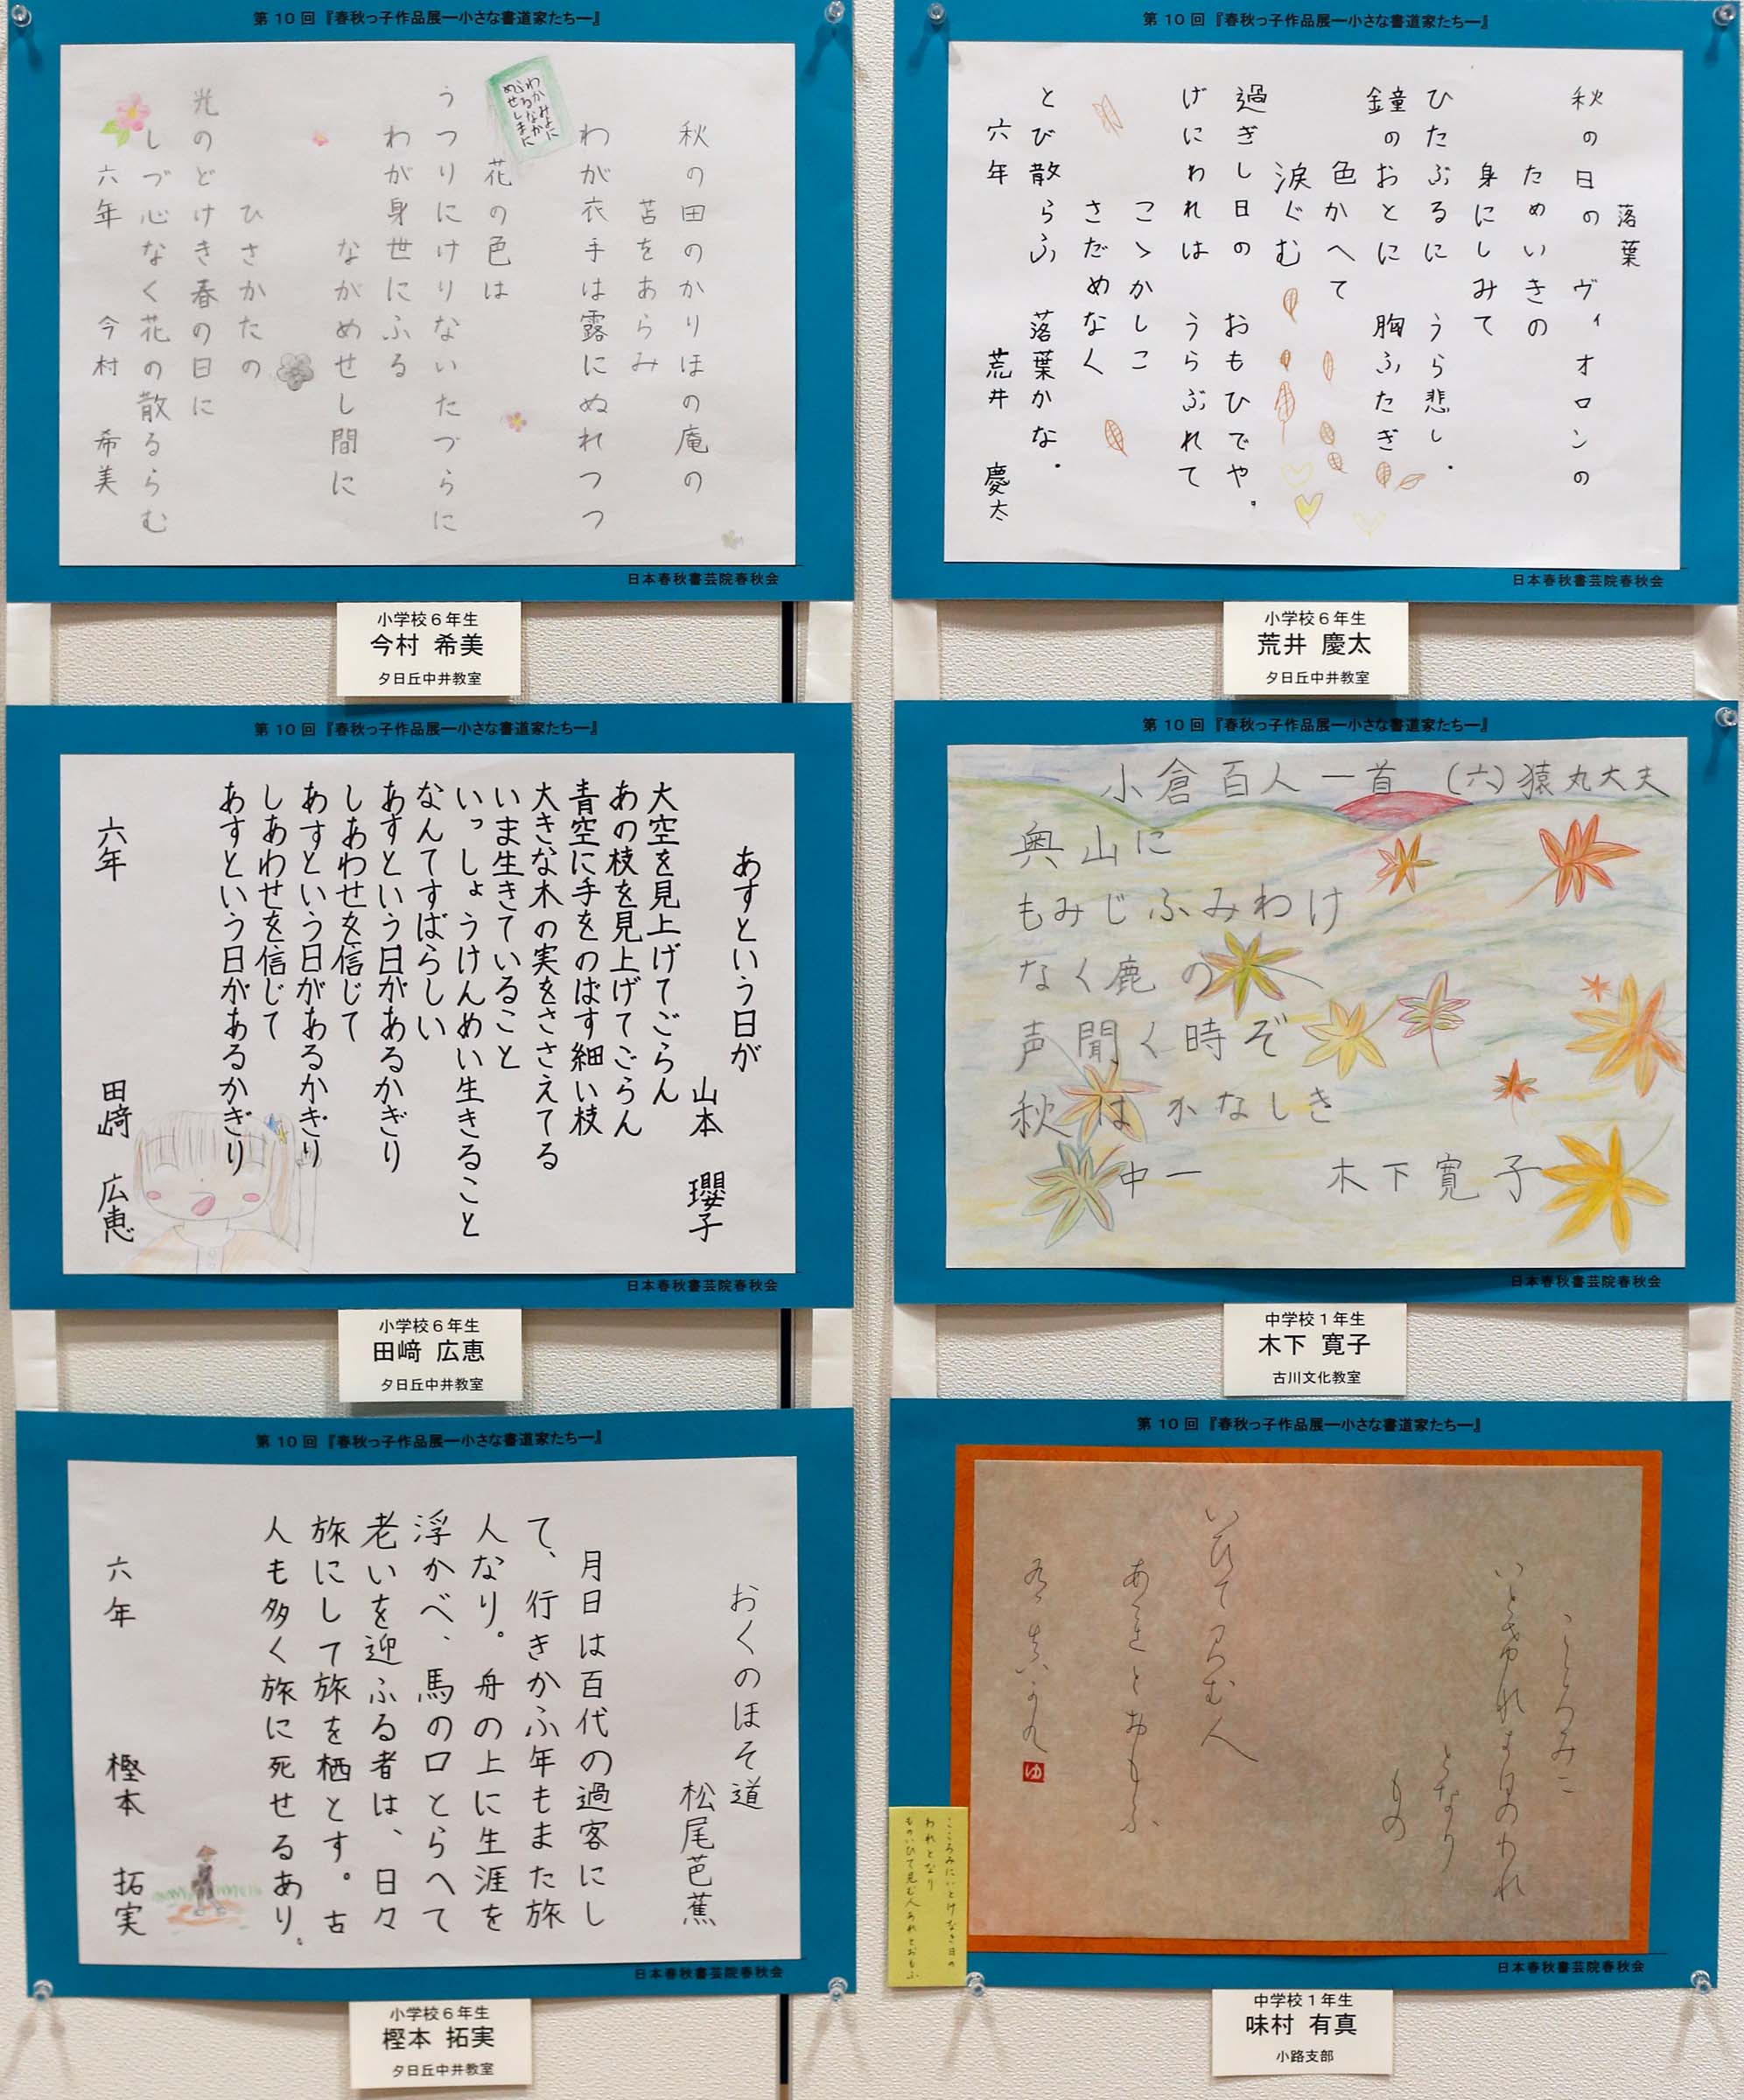 第10回『春秋っ子作品展―小さな書道家たち―』
秋の田のかりほの庵の
苫をあらみ
わが衣手は露にぬれつつ
わかみよに
ふるなか
めせしまに
花の色は
うつりにけりないたづらに
わが身世にふる
ながめせし間に
ひさかたの
光のどけき春の日に
しづ心なく花の散るらむ
六年 今村 希美
日本春秋書芸院春秋会
小学校6年生
今村 希美
夕日丘中井教室
第10回『春秋っ子作品展―小さな書道家たち―』
落葉
秋の日の ヴィオロンの
ためいきの
身にしみて
ひたぶるに うら悲し.
鐘のおとに 胸ふたぎ
色かへて
涙ぐむ
過ぎし日の おもひでや。
げにわれは うらぶれて
こゝかしこ
さだめなく
とび散らふ 落葉かな.
六年 荒井 慶太
日本春秋書芸院春秋会
小学校6年生
荒井 慶太
夕日丘中井教室
第10回『春秋っ子作品展―小さな書道家たち―』
あすという日が
山本 瓔子
大空を見上げてごらん
あの枝を見上げてごらん
青空に手をのばす細い枝
大きな木の実をささえてる
いま生きていること
いっしょうけんめい生きること
なんてすばらしい
あすという日があるかぎり
しあわせを信じて
あすという日があるかぎり
しあわせを信じて
あすという日があるかぎり
六年 田﨑 広恵
日本春秋書芸院春秋会
小学校6年生
田﨑 広恵
夕日丘中井教室
第10回『春秋っ子作品展―小さな書道家たち―』
小倉百人一首 (六)猿丸大夫
奥山に
もみじふみわけ
なく鹿の
声聞く時ぞ
秋はかなしき
中一 木下寛子
日本春秋書芸院春秋会
中学校1年生
木下 寛子
古川文化教室
第10回『春秋っ子作品展―小さな書道家たち―』
おくのほそ道
松尾芭蕉
月日は百代の過客にし
て、行きかふ年もまた旅
人なり。舟の上に生涯を
浮かべ、馬の口とらへて
老いを迎ふる者は、日々
旅にして旅を栖とす。古
人も多く旅に死せるあり。
六年 樫本 拓実
日本春秋書芸院春秋会
小学校6年生
樫本 拓実
夕日丘中井教室
第10回『春秋っ子作品展―小さな書道家たち―』
こころみに
となり
もの
いひて見む人
あれとおもふ
ゆ
こころみにいとけなき日の
われとなり
ものいひて見む人あれとおもふ
日本春秋書芸院春秋会
中学校1年生
味村 有真
小路支部